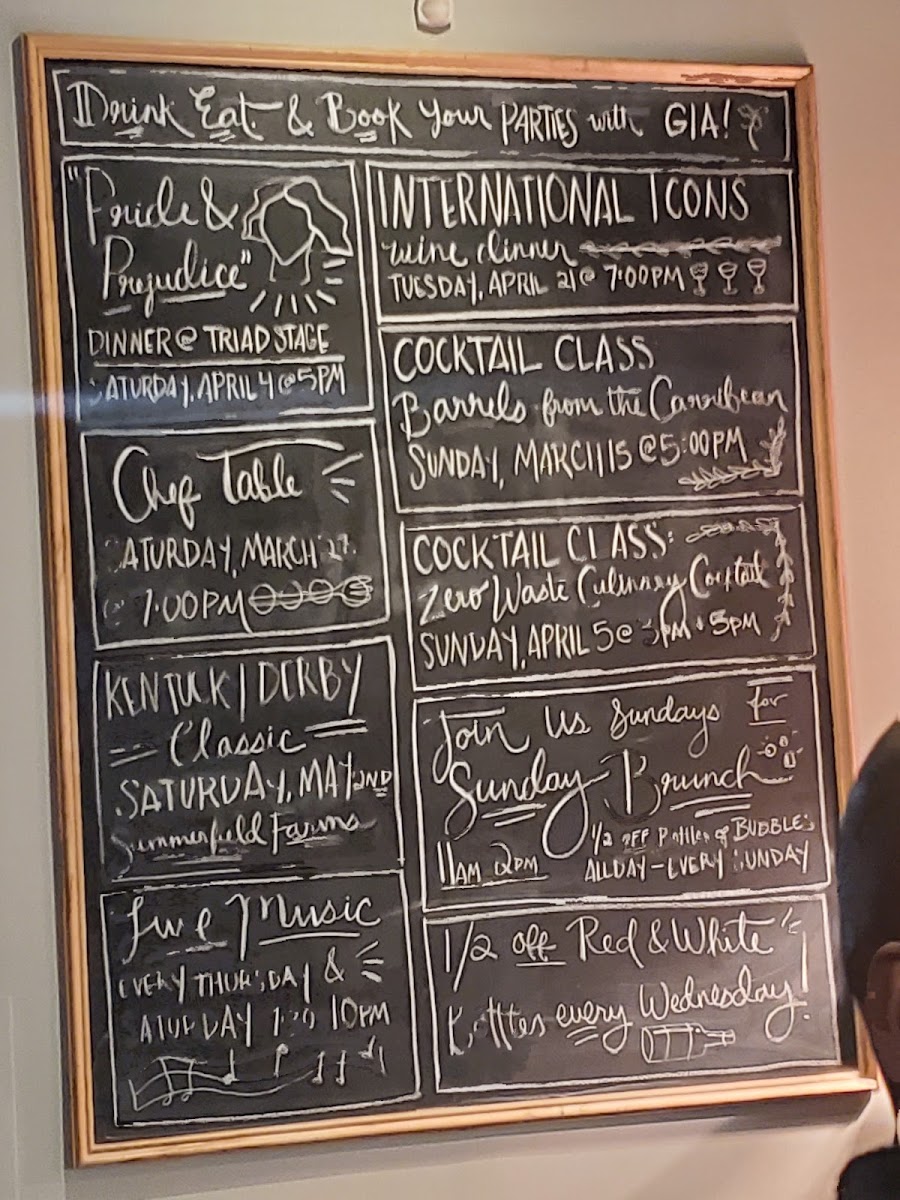 Drink Eat & Book Your PARTIES with GIA!
"Pride &
Prejudice"
DINNER @ TRIAD STAGE
SATURDAY, APRIL 4 @ 5PM
Chef Table
SATURDAY, MARCH
@ 7:00PM
KENTUCKY DERBY
Classic
SATURDAY, MAY 2ND
Summerfield Farms
Live Music
EVERY THURSDAY &
SATURDAY 10PM
INTERNATIONAL ICONS
wine dinner
TUESDAY, APRIL 21 @ 7:00PM
COCKTAIL CLASS
Barrels from the Carribean
SUNDAY, MARCH 15 @ 5:00PM
COCKTAIL CLASS:
Zero Waste Culinary Cocktail
SUNDAY, APRIL 5 @ 3PM & 5PM
Join Us Sundays for
Sunday Brunch
11AM 2PM
1/2 OFF Bottles of BUBBLES
ALLDAY - EVERY SUNDAY
1/2 off Red & White
Bottles every Wednesday!